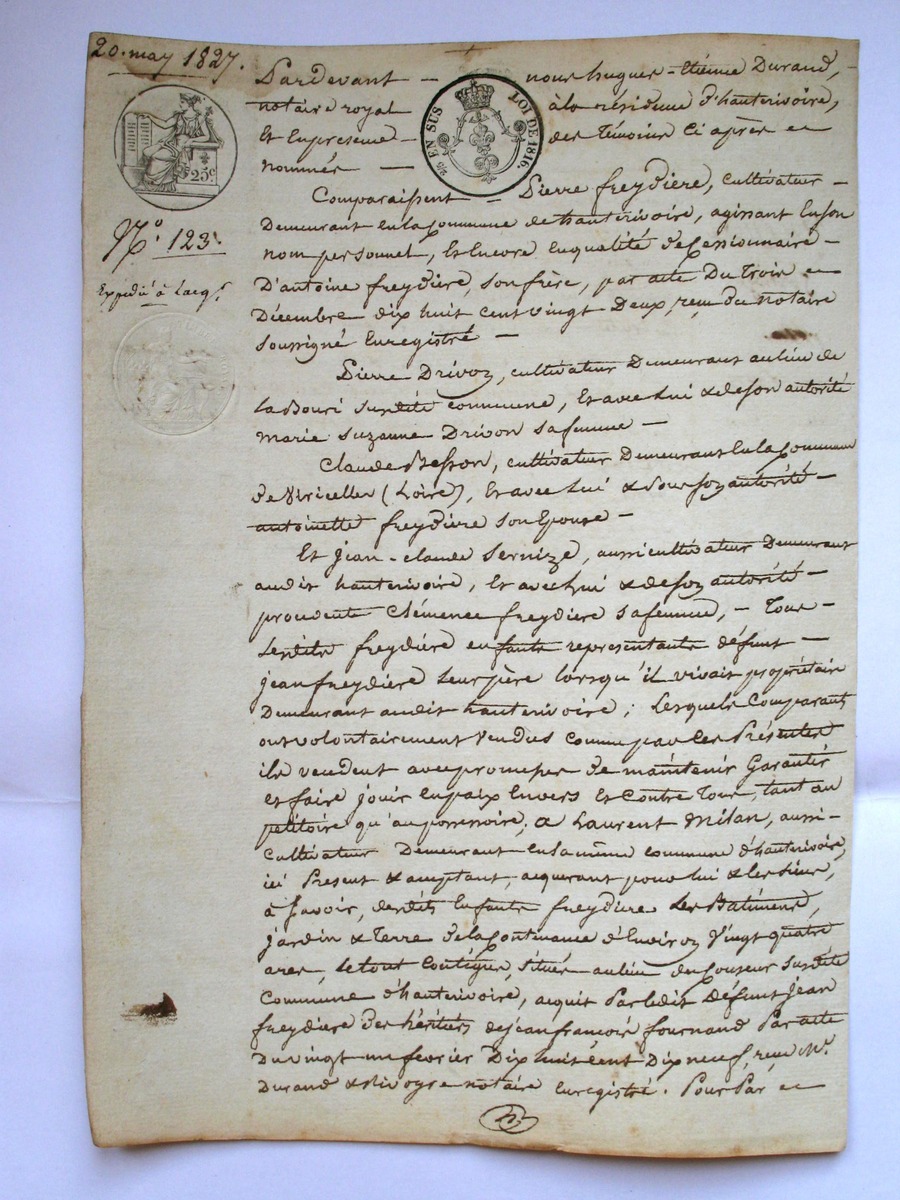 20. may 1827.
Pardevant — nous hugues-étienne Durand, —
notaire royal à la résidence d'hauterivoire,
Et En presence des Témoins Ci après —
nommés —
EN SUS LOI DE 1816.
25c.
N.o 123.
Expédié à l'acq.r
Comparaissent — Pierre freydière, cultivateur —
Demeurant En la Commune de hauterivoire, agissant En son
nom personnel, Et Encore En qualité de Cessionnaire —
D'antoine freydière, son frère, par acte Du Trois
Décembre dix huit cent vingt Deux, reçu du notaire
soussigné Enregistré —
Pierre Drivon, cultivateur Demeurant au lieu de
La Bouri susdite commune, Et avec Lui & de son autorité
Marie Suzanne Drivon sa femme —
Claude Besson, cultivateur Demeurant En la Commune
de Viricelles (Loire), Et avec Lui & sous son autorité —
antoinette freydière son Epouse —
Et Jean-claude Sernize, aussi cultivateur Demeurant
audit hauterivoire, Et avec lui & de son autorité —
procedente Clémence freydiere sa femme, — Tous —
Lesdits freydière enfants representants défunt —
jean freydière leur père lorsqu'il vivait propriétaire
Demeurant audit hauterivoire; Lesquels Comparants
ont volontairement Vendus comme par Ces Présentes
ils vendent avec promesse de maintenir Garantir
et faire jouir en paix Envers Et Contre Tous, tant au
petitoire qu'au possessoire; a Laurent Milan, aussi —
Cultivateur Demeurant En la même commune d'hauterivoire,
ici Present & acceptant, acquerant pour lui & les siens,
à Savoir, desdits Enfants freydiere Les Batimens,
jardin & Terre de la Contenance d'Environ Vingt quatre
ares, Le tout Contigue, situés au lieu du Couseur Susdite
Commune d'hauterivoire, acquit Par Ledit Défunt Jean
freydiere des héritiers de jean françois fournand Par acte
Du vingt un fevrier Dix huit Cent Dix neuf, reçu M.e
Durand & notaire Enregistré. Pour Par